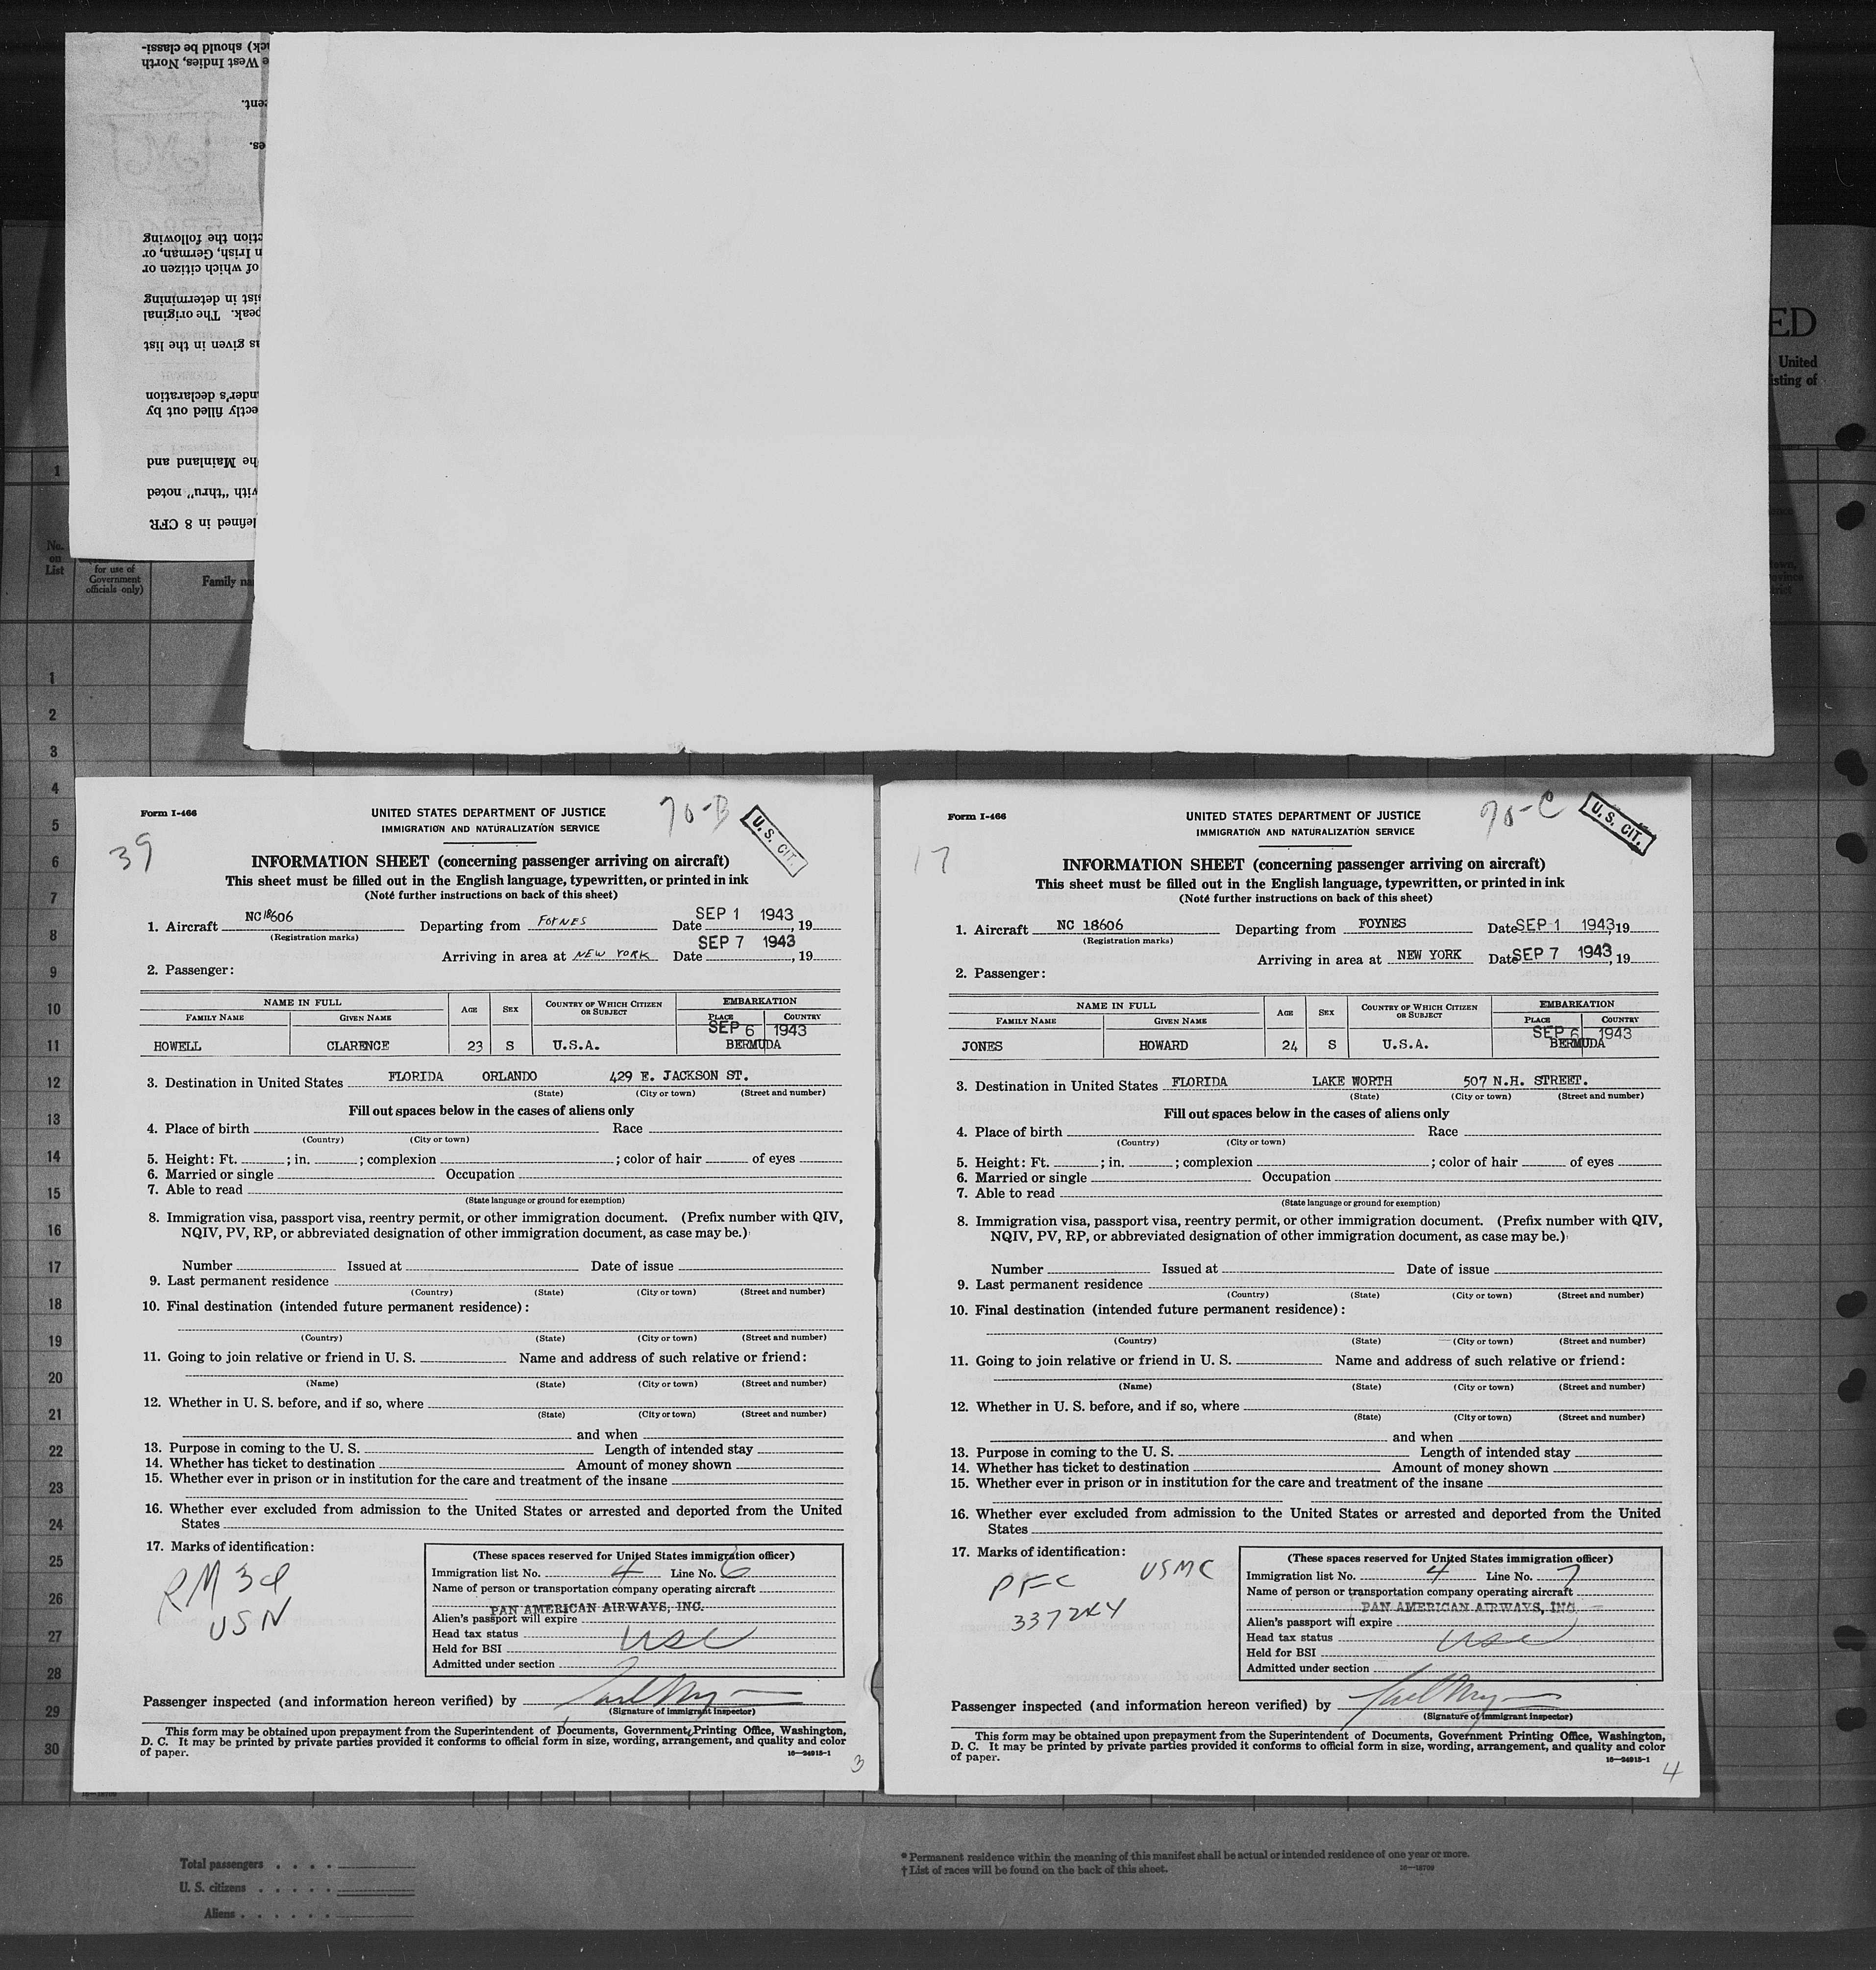 -issclassi- ck) should be classi-
e West Indies, North
cent.
es.
ction the following
n Irish, German, or
of which citizen or
sist in determining
peak. The original
as given in the list
nder's declaration
ectly filled out by
he Mainland and
with "thru" noted
defined in 8 CFR
ED
United
isting of
No.
on
List
for use of
Government
officials only)
Family na
1
1
2
3
4
5
6
7
8
9
10
11
12
13
14
15
16
17
18
19
20
21
22
23
24
25
26
27
28
29
30
Form I-466
UNITED STATES DEPARTMENT OF JUSTICE
IMMIGRATION AND NATURALIZATION SERVICE
70-B
U. S. CIT.
39
INFORMATION SHEET (concerning passenger arriving on aircraft)
This sheet must be filled out in the English language, typewritten, or printed in ink
(Note further instructions on back of this sheet)
1. Aircraft NC 18606 Departing from FOYNES Date SEP 1 1943, 19
(Registration marks)
Arriving in area at NEW YORK Date SEP 7 1943, 19
2. Passenger:
NAME IN FULL AGE SEX COUNTRY OF WHICH CITIZEN OR SUBJECT EMBARKATION
FAMILY NAME GIVEN NAME PLACE COUNTRY
SEP 6 1943
HOWELL CLARENCE 23 S U.S.A. BERMUDA
3. Destination in United States FLORIDA ORLANDO 429 E. JACKSON ST.
(State) (City or town) (Street and number)
Fill out spaces below in the cases of aliens only
4. Place of birth Race
(Country) (City or town)
5. Height: Ft. ; in. ; complexion ; color of hair of eyes
6. Married or single Occupation
7. Able to read
(State language or ground for exemption)
8. Immigration visa, passport visa, reentry permit, or other immigration document. (Prefix number with QIV,
NQIV, PV, RP, or abbreviated designation of other immigration document, as case may be.)
Number Issued at Date of issue
9. Last permanent residence
(Country) (State) (City or town) (Street and number)
10. Final destination (intended future permanent residence):
(Country) (State) (City or town) (Street and number)
11. Going to join relative or friend in U. S. Name and address of such relative or friend:
(Name) (State) (City or town) (Street and number)
12. Whether in U. S. before, and if so, where
(State) (City or town) (Street and number)
and when
13. Purpose in coming to the U. S. Length of intended stay
14. Whether has ticket to destination Amount of money shown
15. Whether ever in prison or in institution for the care and treatment of the insane
16. Whether ever excluded from admission to the United States or arrested and deported from the United
States
17. Marks of identification:
RM 3d
USN
(These spaces reserved for United States immigration officer)
Immigration list No. 4 Line No. 6
Name of person or transportation company operating aircraft
PAN AMERICAN AIRWAYS, INC.
Alien's passport will expire
Head tax status USC
Held for BSI
Admitted under section
Passenger inspected (and information hereon verified) by
(Signature of immigrant inspector)
This form may be obtained upon prepayment from the Superintendent of Documents, Government Printing Office, Washington,
D. C. It may be printed by private parties provided it conforms to official form in size, wording, arrangement, and quality and color
of paper. 16—24915-1
3
Form I-466
UNITED STATES DEPARTMENT OF JUSTICE
IMMIGRATION AND NATURALIZATION SERVICE
70-C
U. S. CIT.
17
INFORMATION SHEET (concerning passenger arriving on aircraft)
This sheet must be filled out in the English language, typewritten, or printed in ink
(Note further instructions on back of this sheet)
1. Aircraft NC 18606 Departing from FOYNES Date SEP 1 1943, 19
(Registration marks)
Arriving in area at NEW YORK Date SEP 7 1943, 19
2. Passenger:
NAME IN FULL AGE SEX COUNTRY OF WHICH CITIZEN OR SUBJECT EMBARKATION
FAMILY NAME GIVEN NAME PLACE COUNTRY
SEP 6 1943
JONES HOWARD 24 S U.S.A. BERMUDA
3. Destination in United States FLORIDA LAKE WORTH 507 N.H. STREET.
(State) (City or town) (Street and number)
Fill out spaces below in the cases of aliens only
4. Place of birth Race
(Country) (City or town)
5. Height: Ft. ; in. ; complexion ; color of hair of eyes
6. Married or single Occupation
7. Able to read
(State language or ground for exemption)
8. Immigration visa, passport visa, reentry permit, or other immigration document. (Prefix number with QIV,
NQIV, PV, RP, or abbreviated designation of other immigration document, as case may be.)
Number Issued at Date of issue
9. Last permanent residence
(Country) (State) (City or town) (Street and number)
10. Final destination (intended future permanent residence):
(Country) (State) (City or town) (Street and number)
11. Going to join relative or friend in U. S. Name and address of such relative or friend:
(Name) (State) (City or town) (Street and number)
12. Whether in U. S. before, and if so, where
(State) (City or town) (Street and number)
and when
13. Purpose in coming to the U. S. Length of intended stay
14. Whether has ticket to destination Amount of money shown
15. Whether ever in prison or in institution for the care and treatment of the insane
16. Whether ever excluded from admission to the United States or arrested and deported from the United
States
17. Marks of identification:
PFC USMC
(These spaces reserved for United States immigration officer)
Immigration list No. 4 Line No. 7
Name of person or transportation company operating aircraft
PAN AMERICAN AIRWAYS, INC
Alien's passport will expire
Head tax status USC
Held for BSI
Admitted under section
Passenger inspected (and information hereon verified) by
(Signature of immigrant inspector)
This form may be obtained upon prepayment from the Superintendent of Documents, Government Printing Office, Washington,
D. C. It may be printed by private parties provided it conforms to official form in size, wording, arrangement, and quality and color
of paper. 16—24915-1
4
Total passengers . . . .
U. S. citizens . . . . .
Aliens . . . . . .
* Permanent residence within the meaning of this manifest shall be actual or intended residence of one year or more.
† List of races will be found on the back of this sheet. 16—18709